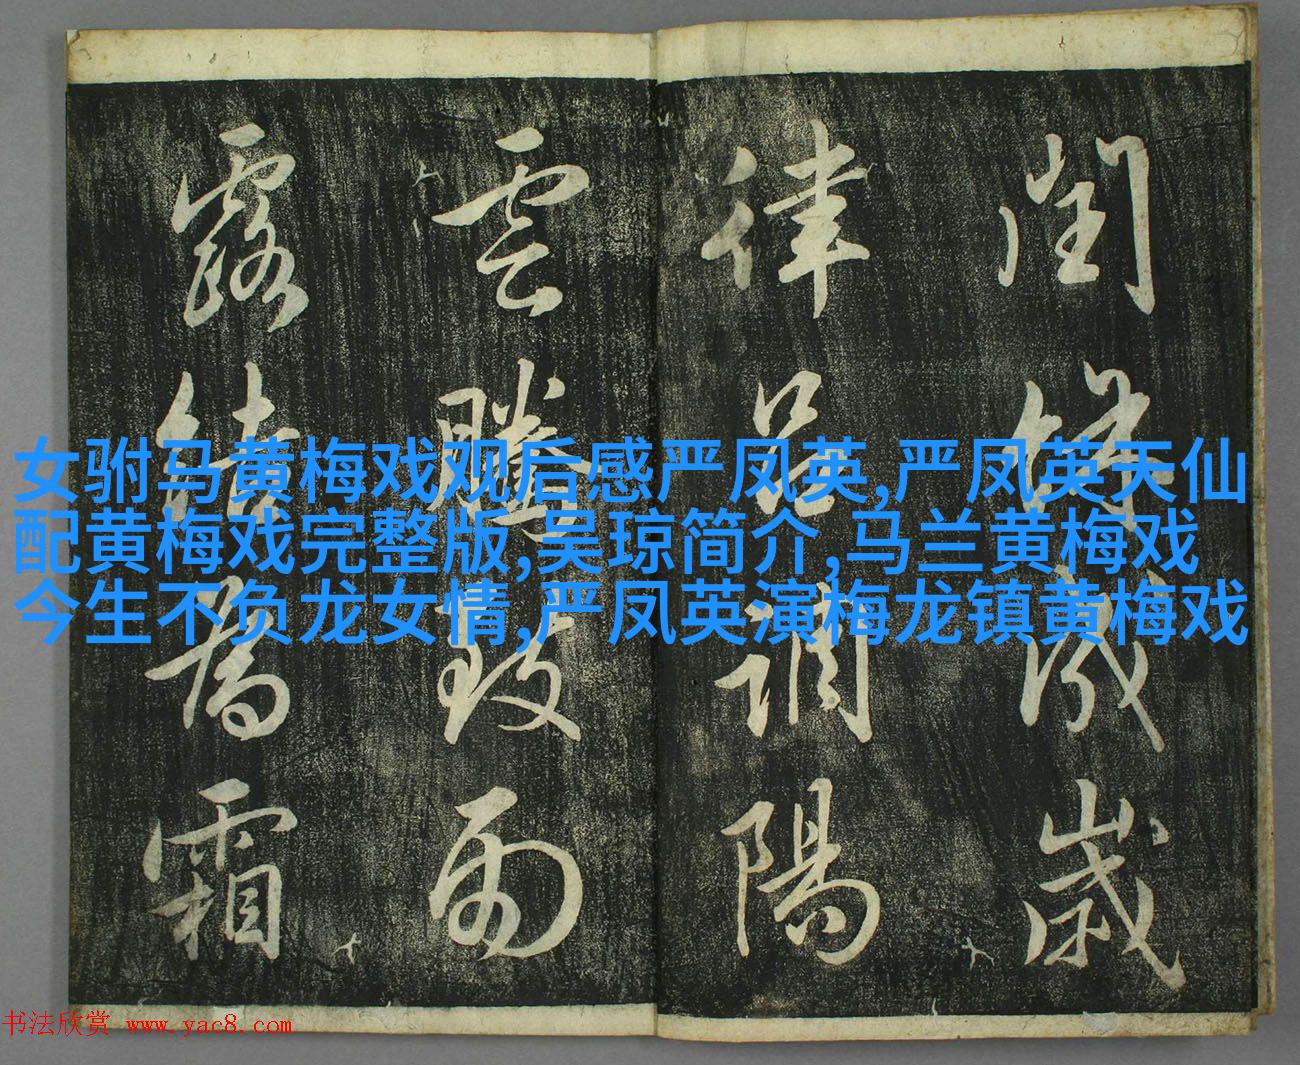 閏餘成歲
律呂調陽
雲騰致雨
露結為霜
女驸马黄梅戏观后感严凤英,严凤英天仙
配黄梅戏完整版,吴琼简介,马兰黄梅戏
今生不负龙女情,严凤英演梅龙镇黄梅戏
书法欣赏 www.yac8.com